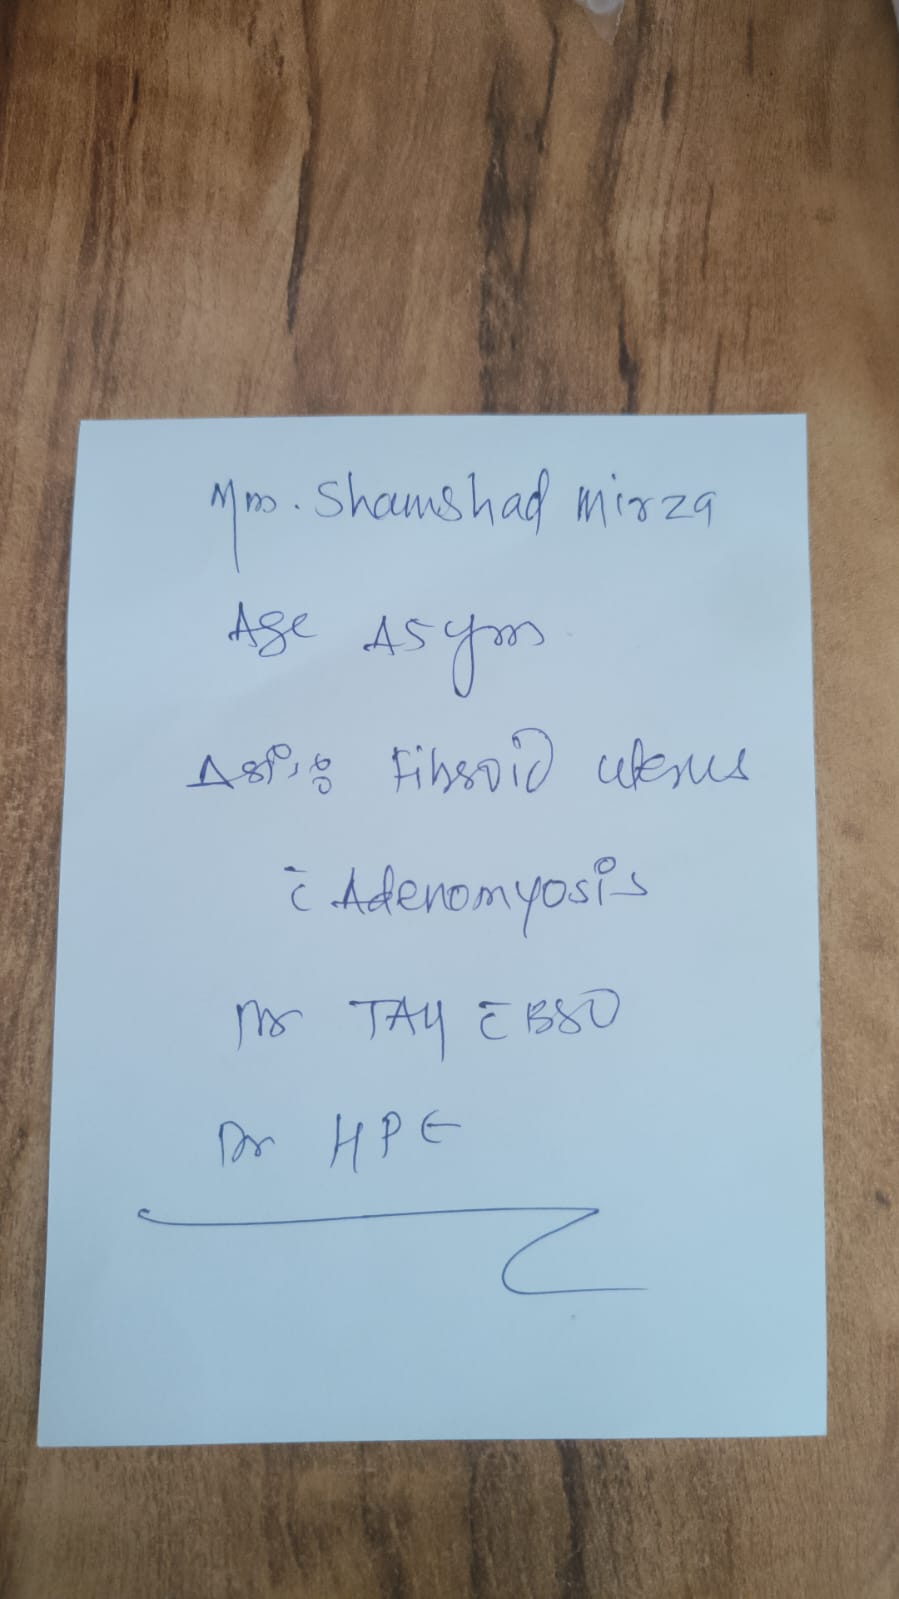 Mrs. Shamshad Mirza
Age 45 yrs
Fibroid uterus
c̄ Adenomyosis
TAH c̄ BSO
HPE